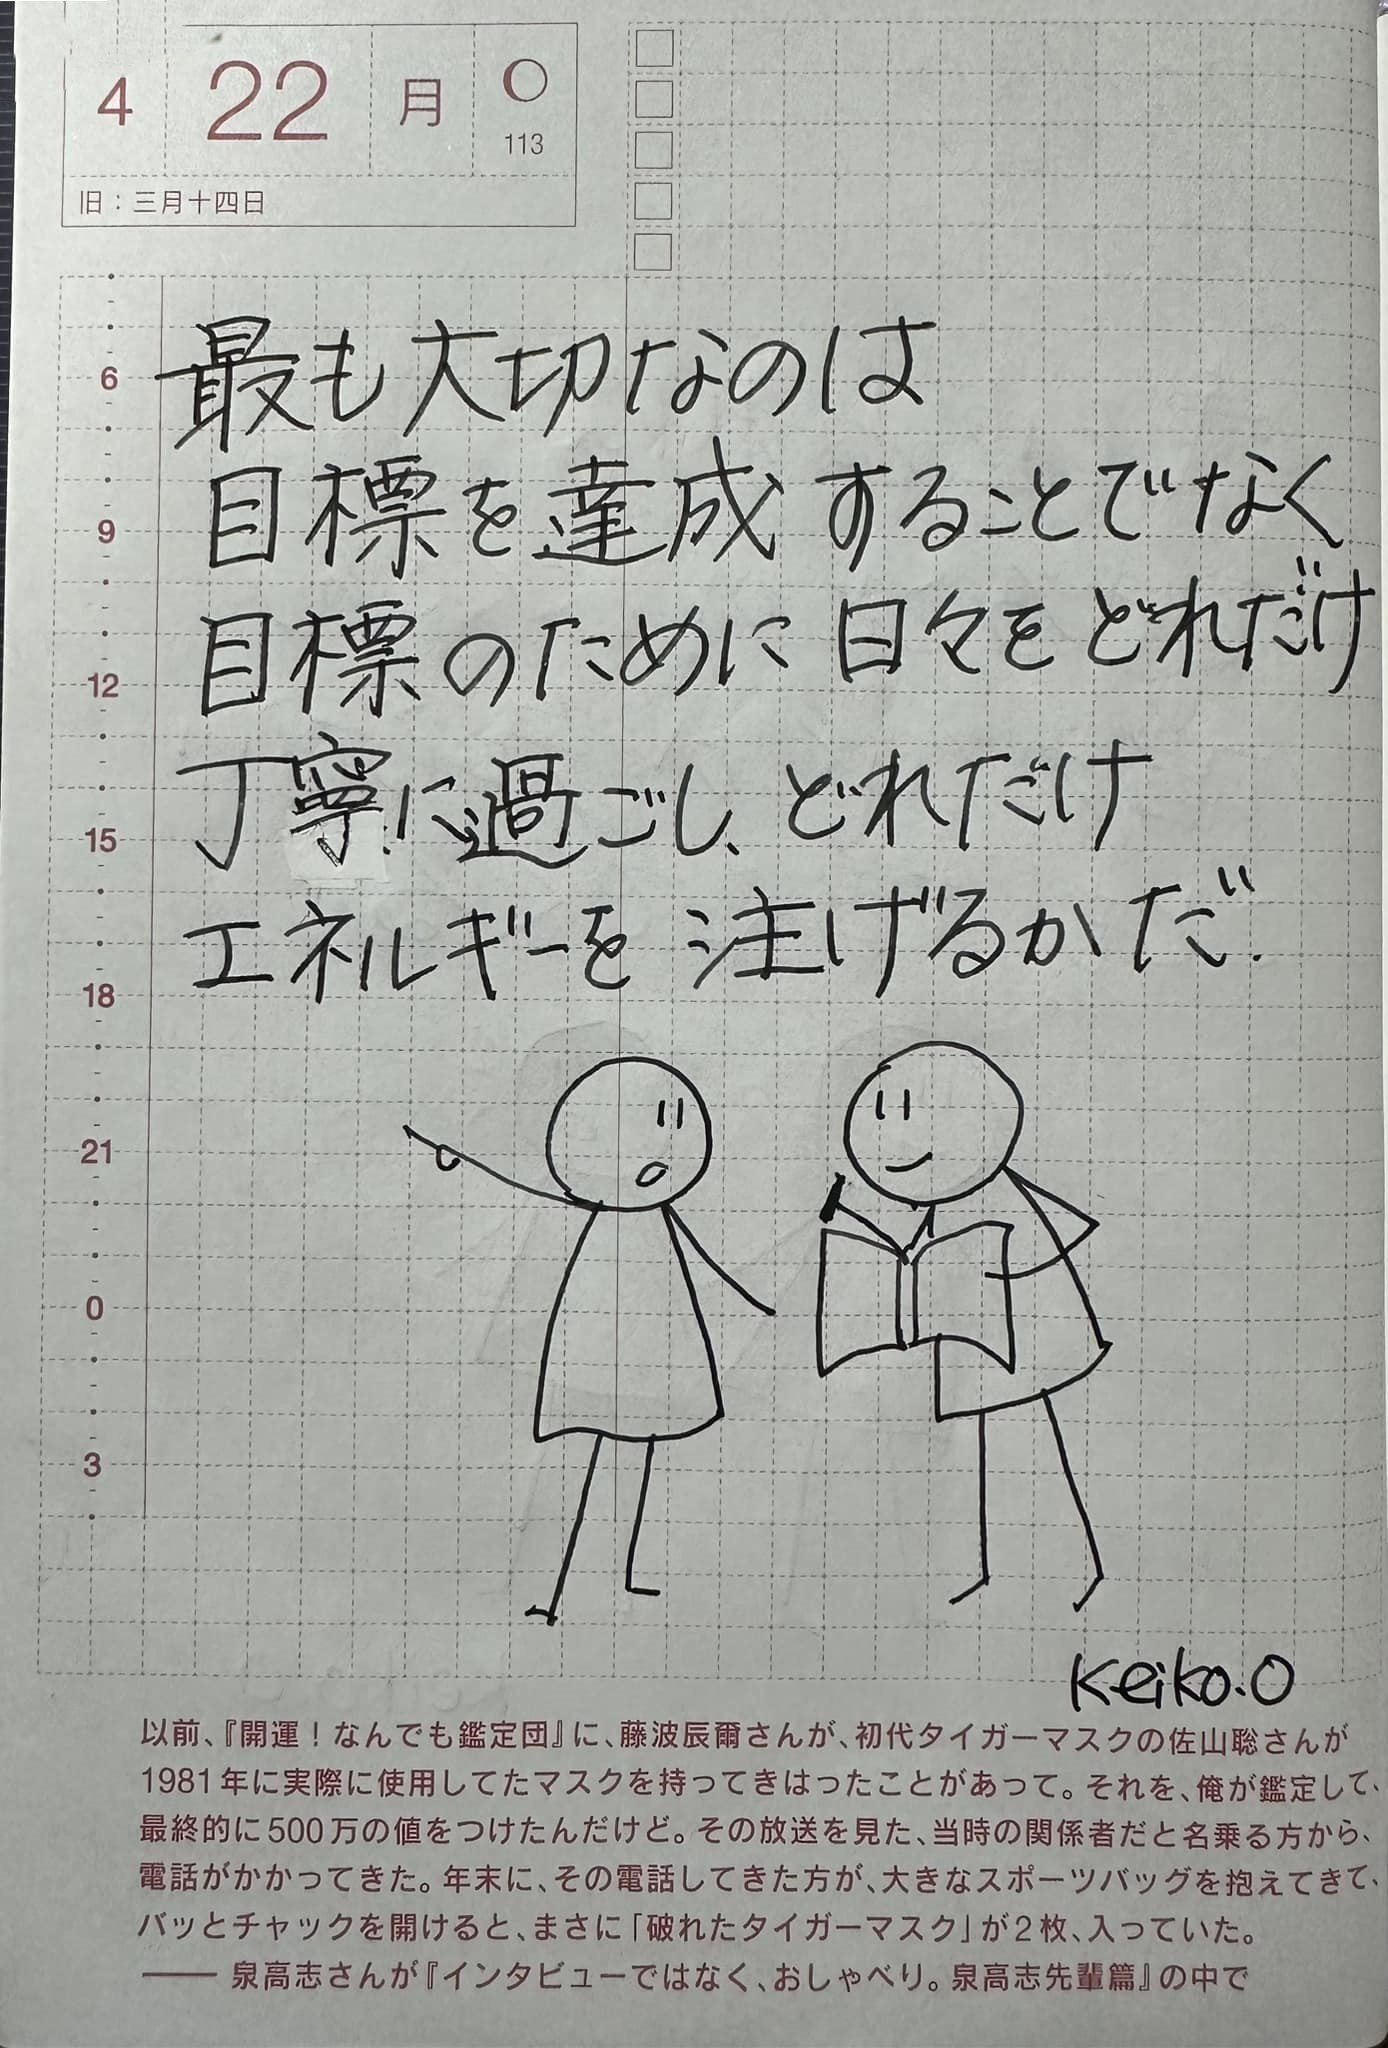 4 22 月
113
旧：三月十四日
最も大切なのは
6
目標を達成することでなく
9
目標のために日々をどれだけ
12
丁寧に過ごし、どれだけ
15
エネルギーを注げるかだ.
18
21
0
3
Keiko.O
以前、『開運！なんでも鑑定団』に、藤波辰爾さんが、初代タイガーマスクの佐山聡さんが
1981年に実際に使用してたマスクを持ってきはったことがあって。それを、俺が鑑定して、
最終的に500万の値をつけたんだけど。その放送を見た、当時の関係者だと名乗る方から、
電話がかかってきた。年末に、その電話してきた方が、大きなスポーツバッグを抱えてきて、
バッとチャックを開けると、まさに「破れたタイガーマスク」が2枚、入っていた。
―― 泉高志さんが『インタビューではなく、おしゃべり。泉高志先輩篇』の中で